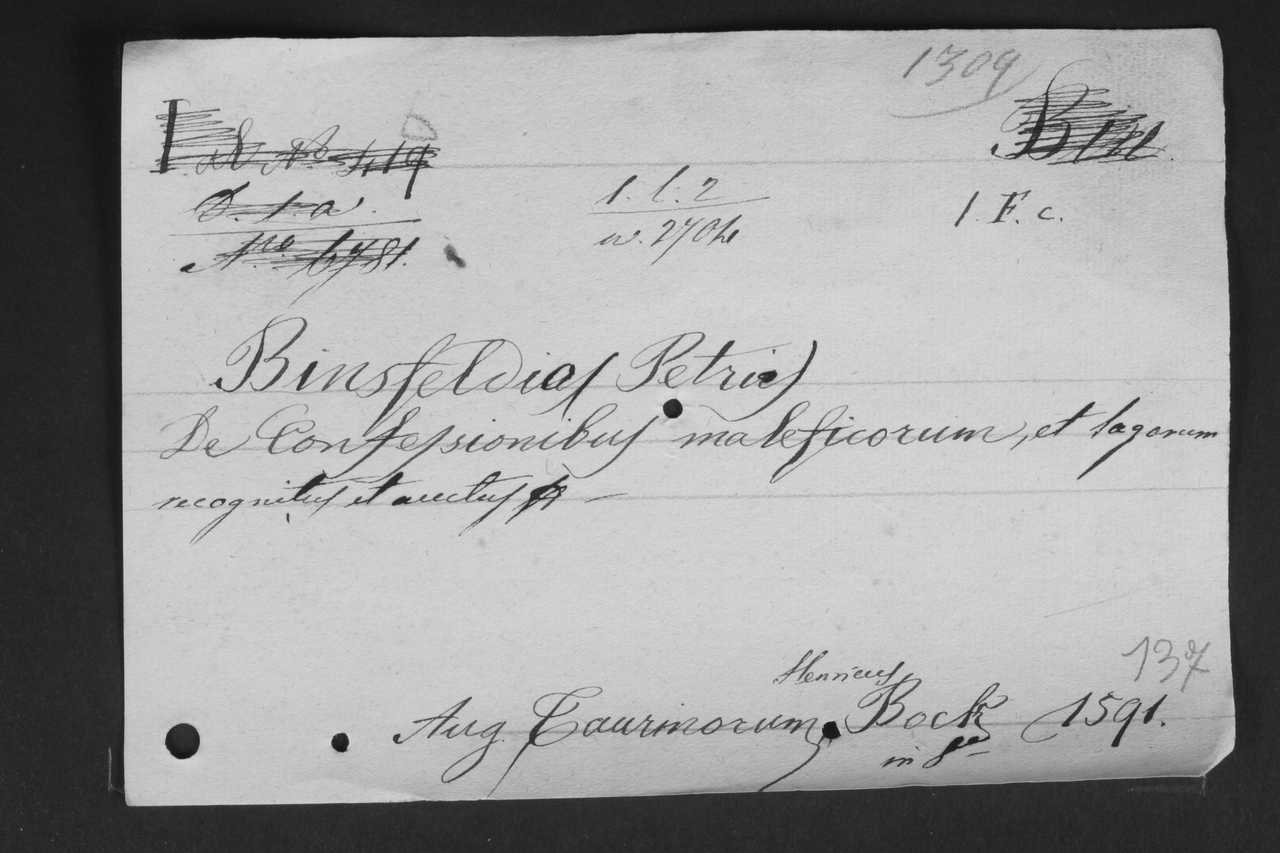 1309
Bin
ad No. 419
D. 1. a.
No. 6781.
1. l. 2
w. 270h
1. F. c.
Binsfeldias Petrus)
De Confessionibus maleficorum, et sagarum
recognitus et auctus
137
Henricus
Aug. Taurinorum. Bock 1591.
in 8vo